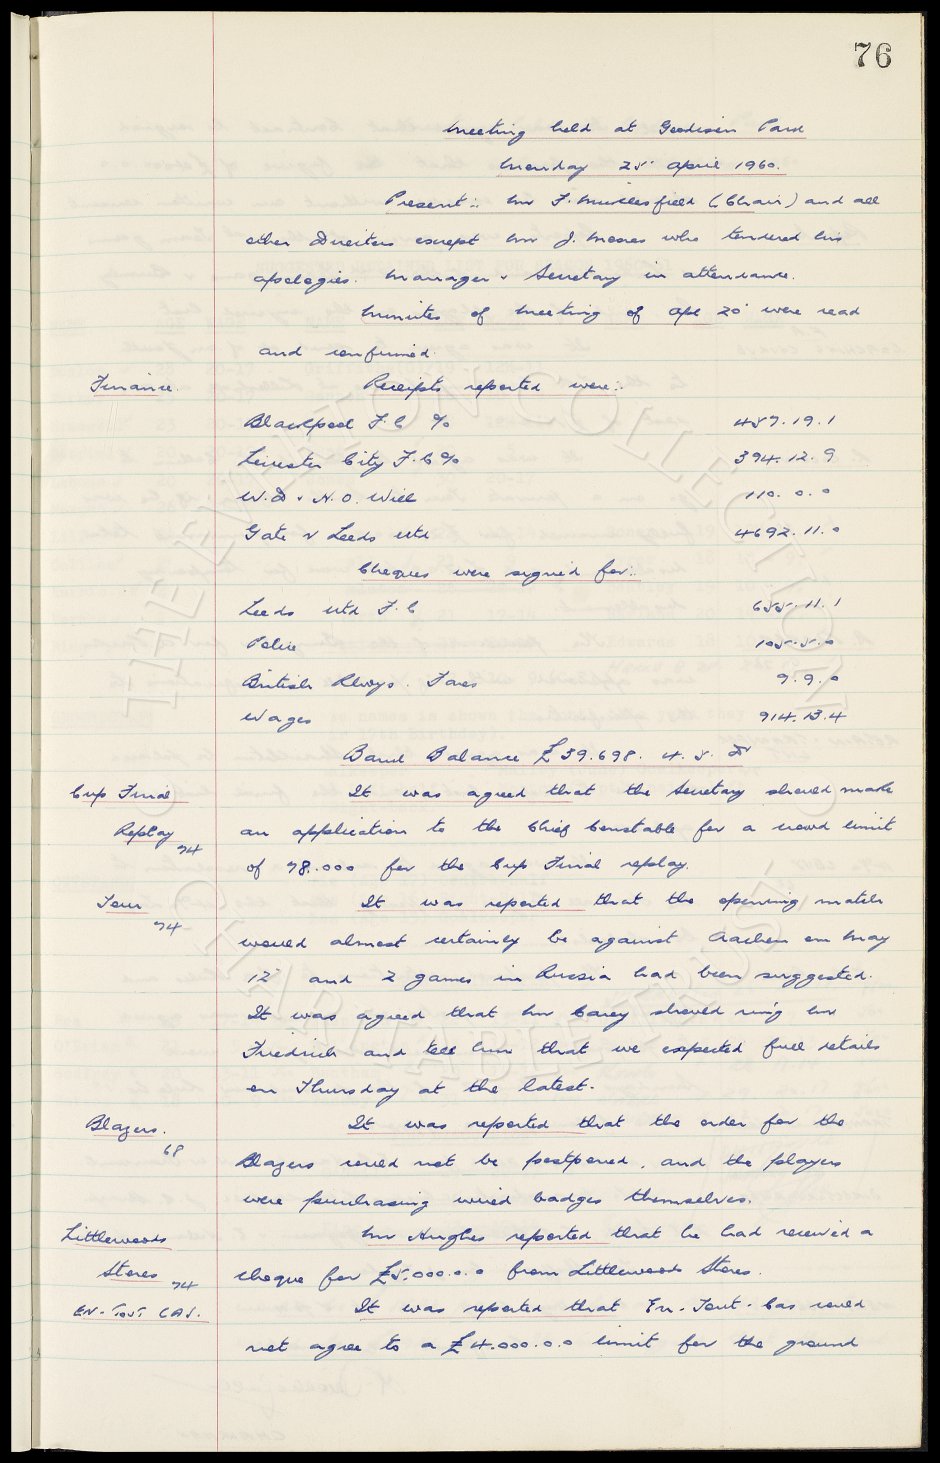 76
Meeting held at Goodison Park
Monday 25 April 1960.
Present:- Mr F. Micklesfield (Chair) and all
other Directors except Mr J. Moores who tendered his
apologies. Manager & Secretary in attendance.
Minutes of meeting of Apl 20 were read
and confirmed.
Finance. Receipts reported were:-
Blackpool F.C % 457.19.1
Leicester City F.C % 394.12.9
W.D & H.O. Will 110.0.0
Gate v Leeds Utd 4692.11.0
Cheques were signed for:-
Leeds Utd F.C 655.11.1
Police 105.5.0
British Rlwys. Fares 9.9.0
Wages 914.13.4
Bank Balance £39.698.4.5. Dr
Cup Final It was agreed that the Secretary should make
Replay 74 an application to the Chief Constable for a crowd limit
of 78.000 for the Cup Final replay.
Tour It was reported that the opening match
74 would almost certainly be against Aachen on May
12 and 2 games in Russia had been suggested.
It was agreed that Mr Carey should ring Mr
Friedrich and tell him that we expected full details
on Thursday at the latest.
Blazers. It was reported that the order for the
68 Blazers could not be postponed, and the players
were purchasing wired badges themselves.
Littlewoods Mr Hughes reported that he had received a
Stores 74 cheque for £5.000.0.0 from Littlewoods Stores.
EN-TOUT CAS. It was reported that En-Tout-Cas could
not agree to a £4.000.0.0 limit for the ground
THE EVERTON COLLECTION
CHARITABLE TRUST